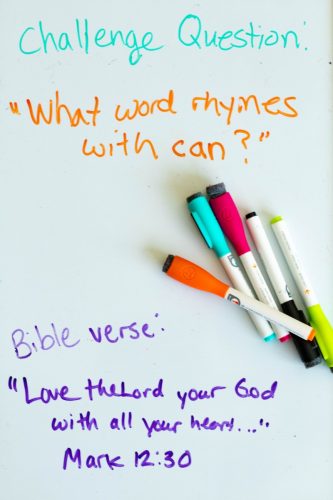 Challenge Question:
"What word rhymes
with can?"
Bible verse:
"Love the Lord your God
with all your heart..."
Mark 12:30